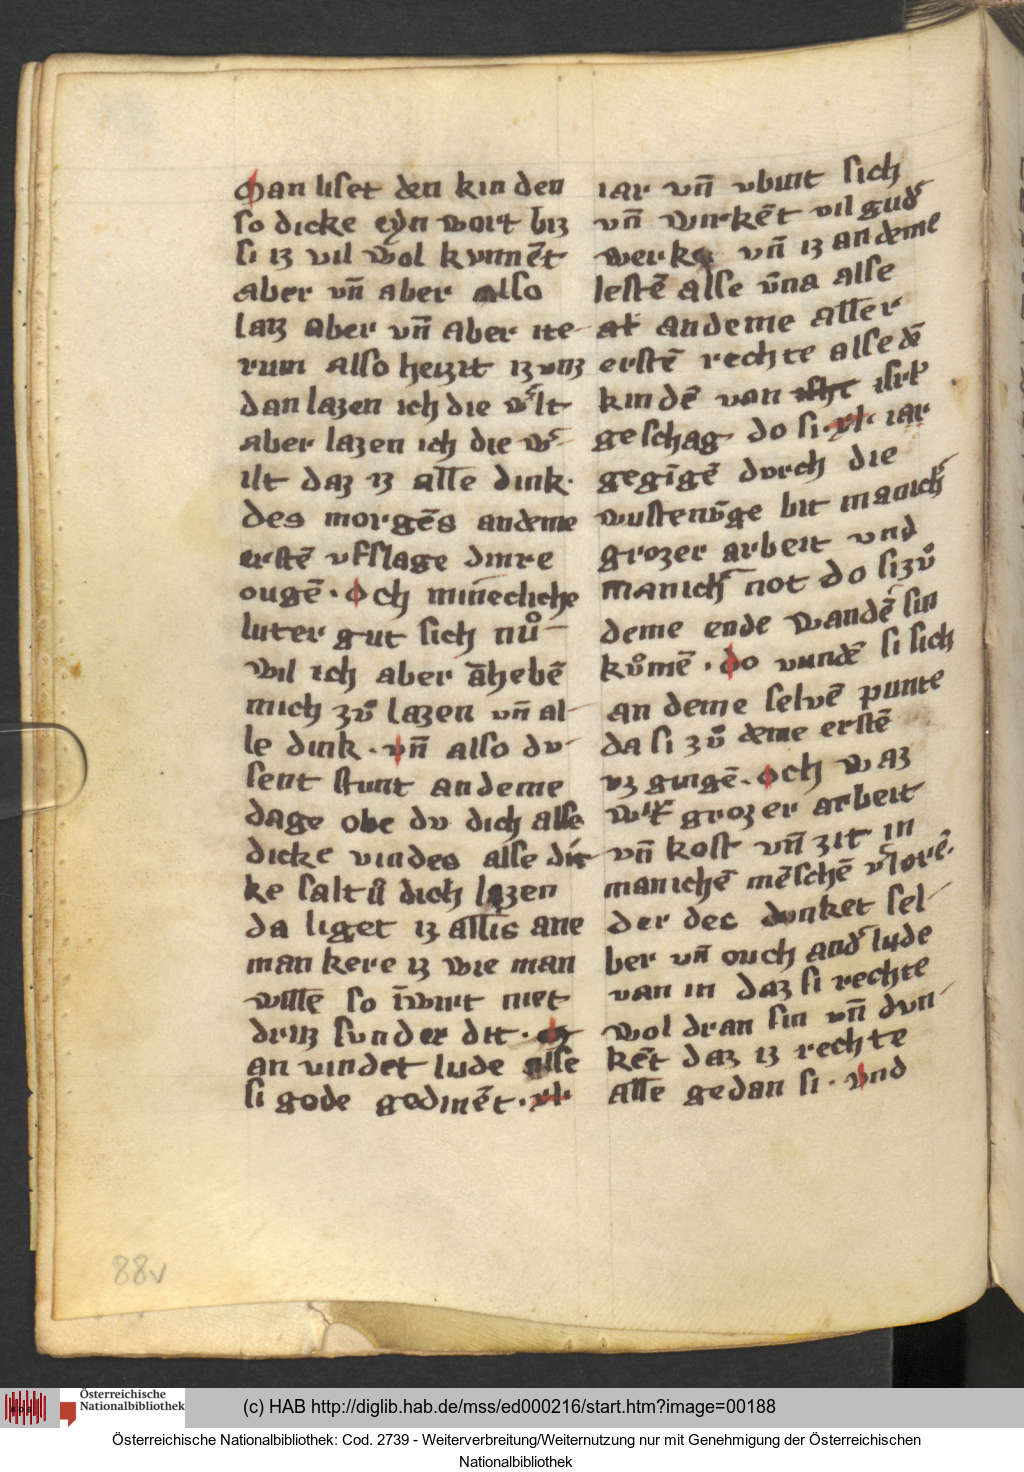 Man liset den kinden
so dicke eyn wort biz
si iz vil wol kvnnēt
aber vn̄ aber also
laiz aber vn̄ aber ite-
rum also heizit iz vnz
dan lazen ich die w̓lt
aber lazen ich die w̓-
ilt daz iz alle dink.
des morgēs andeme
erstē vfslage dinre
ougē. Och minēcliche
luter gut sich nuͦ-
wil ich aber āhebē
mich zvͦ lazen vn̄ al-
le dink. vn̄ also dv-
sent stunt andeme
dage obe dv dich alse
dicke vindes alse dic-
ke saltuͦ dich lazen
da liget iz allis ane
man kere iz wie man
wille so īwirt niet
driz sunder dit.
an vindet lude alse
si gode gedinēt. xl.
iar vn̄ vbint sich
vn̄ wirkēt vil gud̓
werke vn̄ iz andeme
lestē alse v̄na alse
at andeme aller
erstē rechte alse dē
kindē van isrl̓
geschag do si. xl. iar
gegīgē dvrch die
wustenv̄ge bit manich̓
grozer arbeit vnd
manich̓ not do si zvͦ
deme ende wandē sin
kvͦmē. do vundē si sich
an deme seluē punte
da si zvͦ deme erstē
vz gingē. och waz
wirt grozer arbeit
vn̄ kost vn̄ zit in
manichē mēschē v̓lorē.
der des dunket sel-
ber vn̄ ouch and̓ lude
van in daz si rechte
wol dran sin vn̄ dvn-
kēt daz iz rechte
alle gedan si. vnd
88v
Österreichische
Nationalbibliothek
(c) HAB http://diglib.hab.de/mss/ed000216/start.htm?image=00188
Österreichische Nationalbibliothek: Cod. 2739 - Weiterverbreitung/Weiternutzung nur mit Genehmigung der Österreichischen
Nationalbibliothek